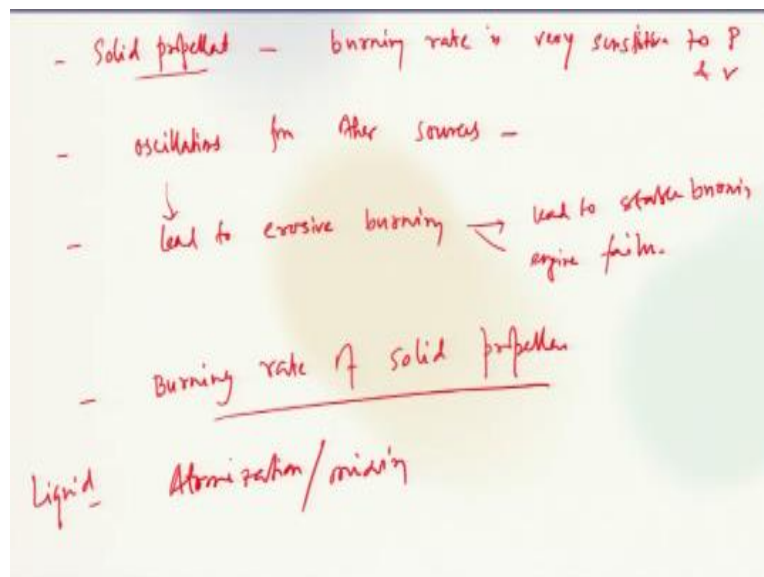 - Solid propellat - burning rate is very sensitive to P
& v
- oscillations from other sources -
↓
- lead to erosive burning → lead to stable burning
engine failure.
- Burning rate of solid propellen
Liquid Atomization/mixing